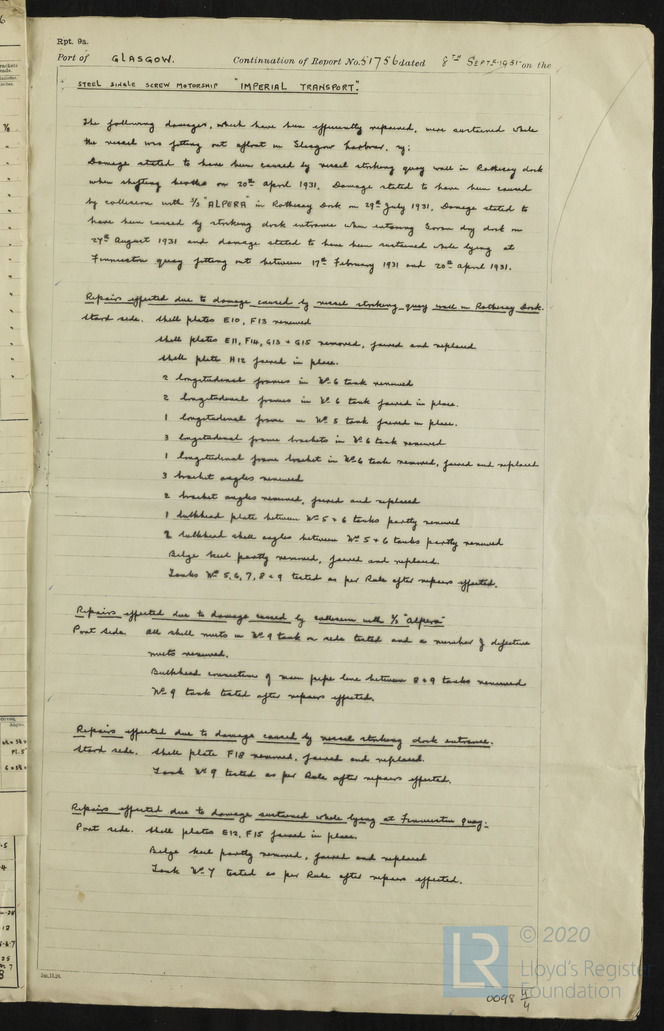 Rpt. 9a.
Port of GLASGOW. Continuation of Report No. 51756 dated 8TH SEPT. 1931 on the
STEEL SINGLE SCREW MOTORSHIP "IMPERIAL TRANSPORT".
The following damages, which have been efficiently repaired, were sustained while
the vessel was fitting out afloat in Glasgow harbour, viz:
Damage stated to have been caused by vessel striking quay wall in Rothesay dock
when shifting berths on 20th April 1931. Damage stated to have been caused
by collision with S/S "ALPERA" in Rothesay Dock on 29th July 1931. Damage stated to
have been caused by striking dock entrance when entering Govan dry dock on
27th August 1931 and damage stated to have been sustained while lying at
Finnieston quay fitting out between 17th February 1931 and 20th April 1931.
Repairs effected due to damage caused by vessel striking quay wall in Rothesay Dock.
Starbd side. Shell plates E10, F13 renewed
Shell plates E11, F14, G13 + G15 removed, faired and replaced
Shell plate H12 faired in place.
2 longitudinal frames in No 6 tank renewed
2 longitudinal frames in No 6 tank faired in place.
1 longitudinal frame in No 5 tank faired in place.
3 longitudinal frame brackets in No 6 tank renewed
1 longitudinal frame bracket in No 6 tank removed, faired and replaced
3 bracket angles renewed
2 bracket angles removed, faired and replaced
1 bulkhead plate between No 5 + 6 tanks partly renewed
2 bulkhead shell angles between No 5 + 6 tanks partly renewed
Bilge keel partly removed, faired and replaced.
Tanks No 5, 6, 7, 8 + 9 tested as per Rule after repairs effected.
Repairs effected due to damage caused by collision with S/S "Alpera"
Port side. All shell rivets in No 9 tank on side tested and a number of defective
rivets renewed.
Bulkhead connection of main pipe line between 8 + 9 tanks renewed
No 9 tank tested after repairs effected.
Repairs effected due to damage caused by vessel striking dock entrance.
Starbd side. Shell plate F18 removed, faired and replaced.
Tank No 9 tested as per Rule after repairs effected.
Repairs effected due to damage sustained while lying at Finnieston quay:
Port side. Shell plates E12, F15 faired in place.
Bilge keel partly removed, faired and replaced
Tank No 7 tested as per Rule after repairs effected.
© 2020
LR
Lloyd's Register
Foundation
0098 4/4